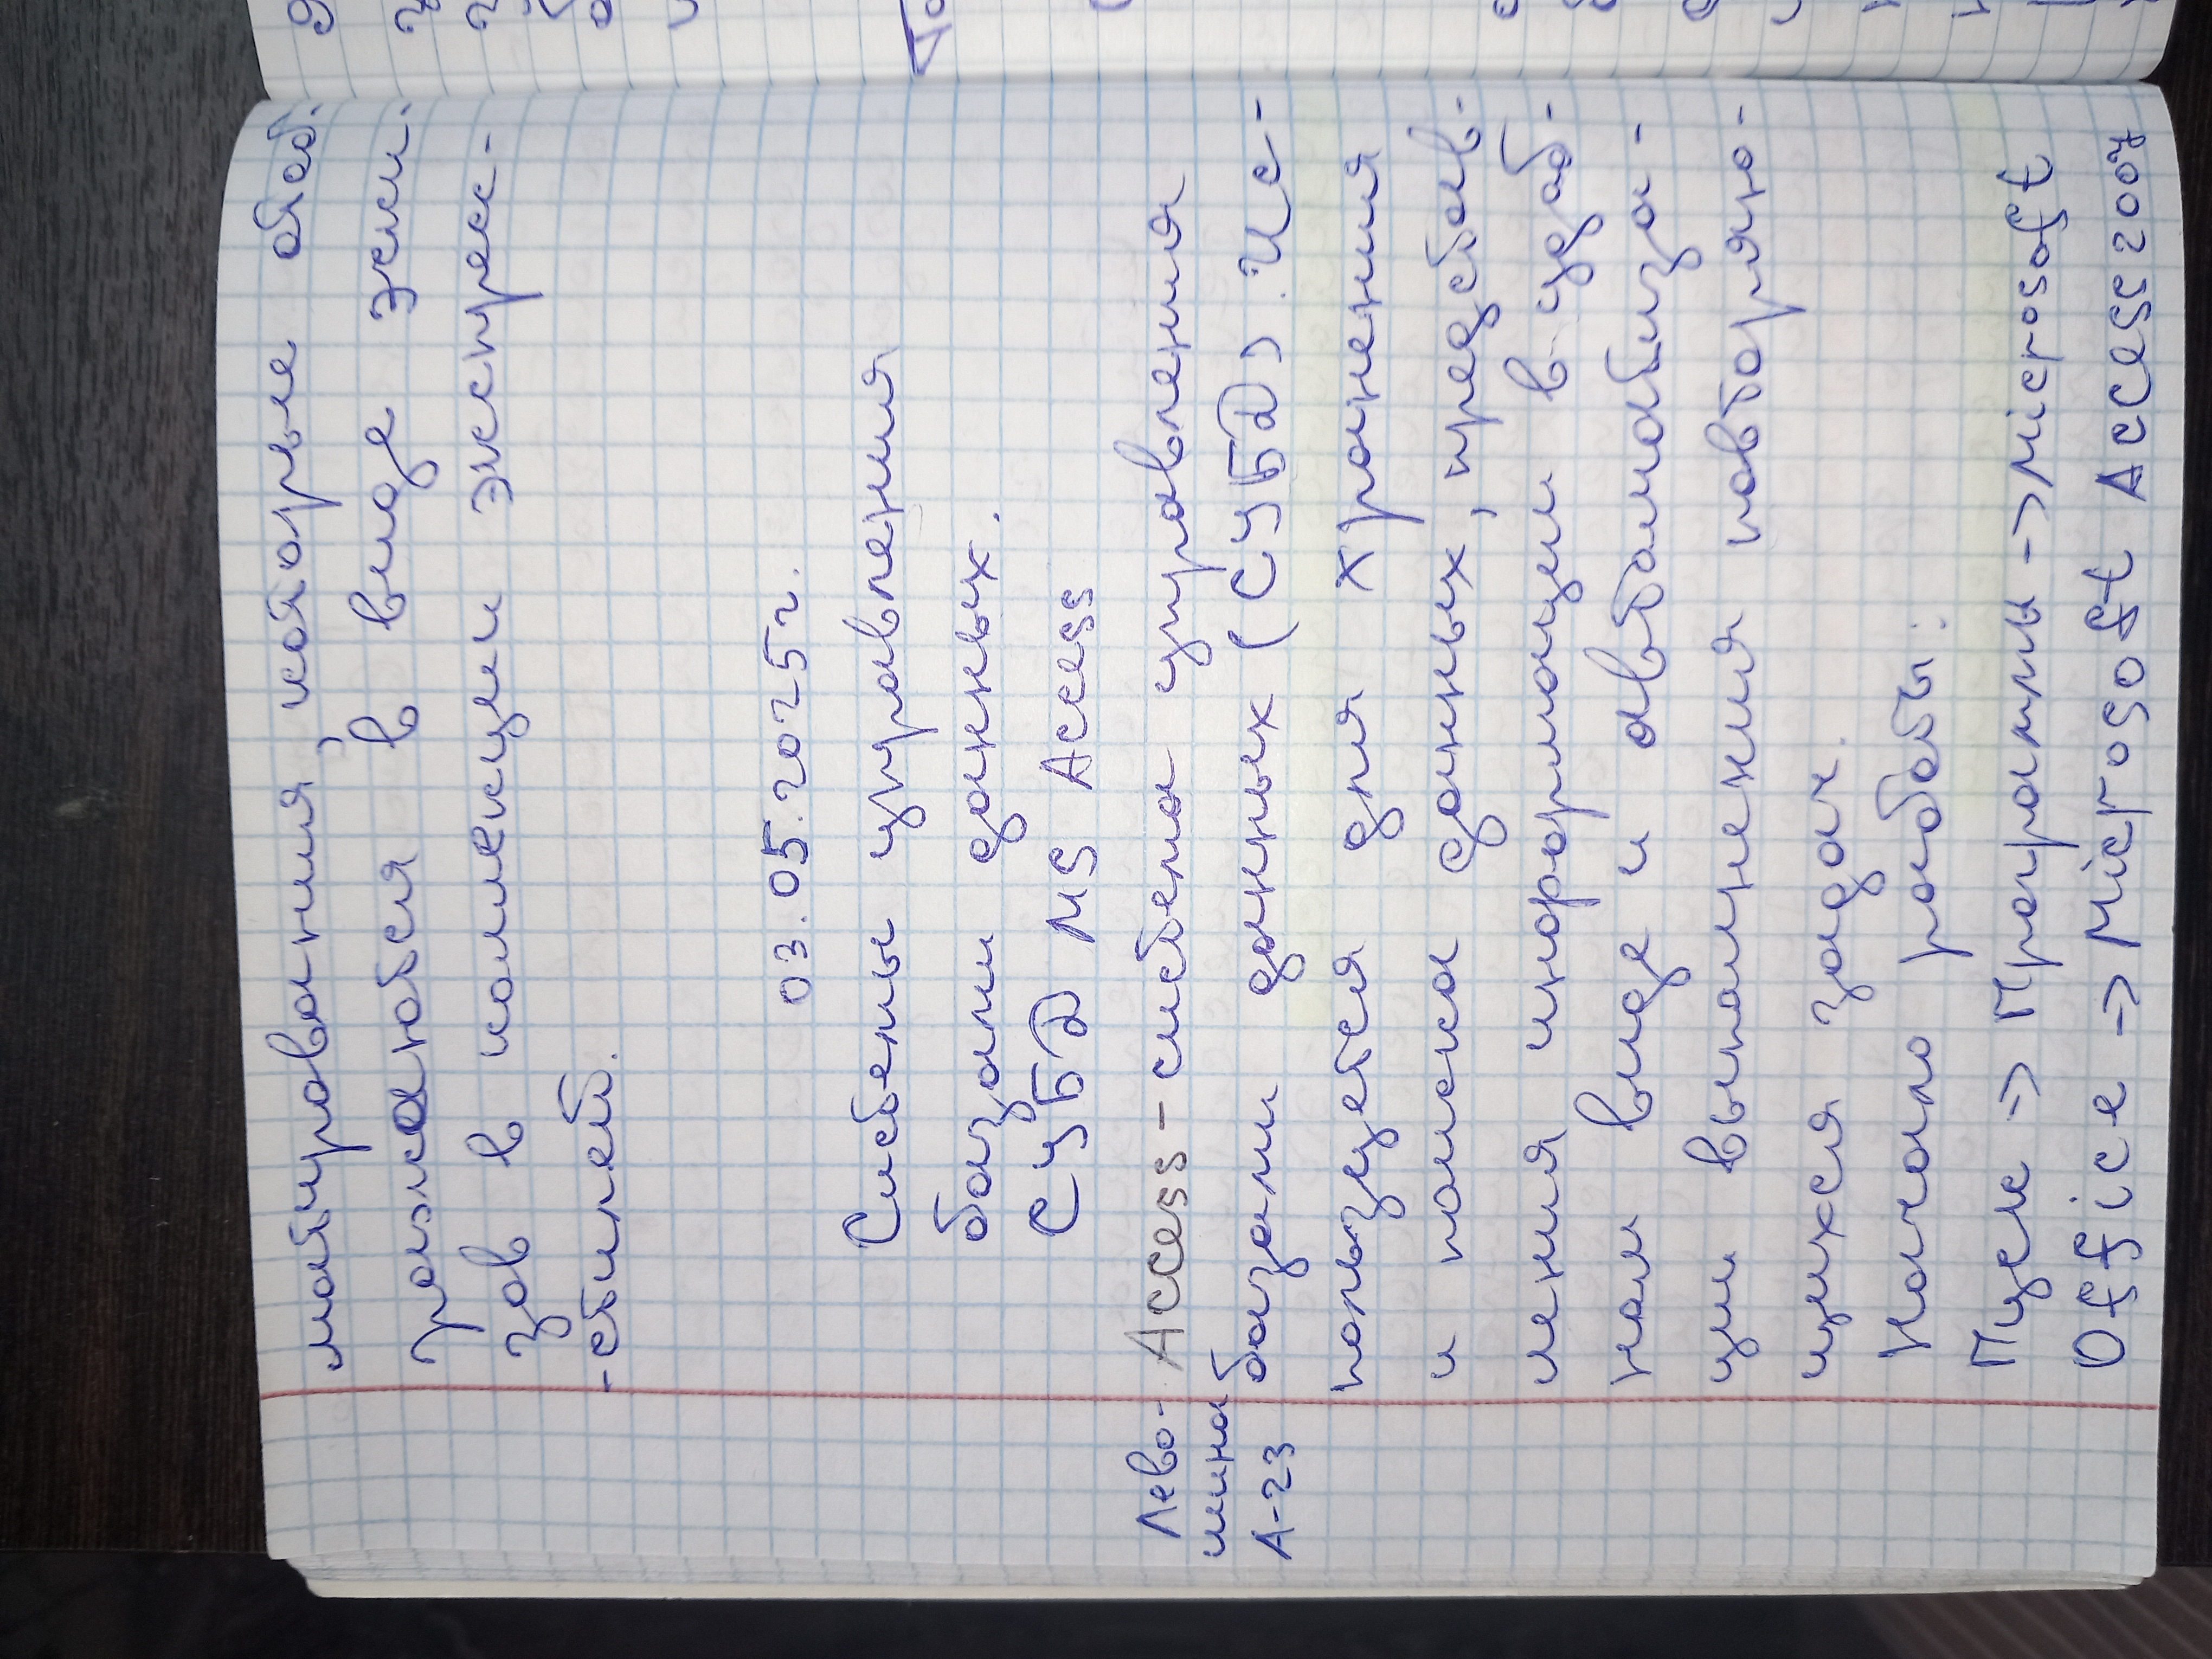 матирования, которые отоб.
размаются в виде экши.
зов в коллекции экспресс-
-стилей.
03.05.2025г.
Системы управления
базами данных.
СУБД MS Access
Access - система управления
базами данных (СУБД). Ис-
пользуется для хранения
и поиска данных, представ-
ления информации в удоб-
ном виде и автоматиза-
ции выполнения повторяю-
щихся задач.
Начало работы:
Пуск => Программы -> Microsoft
Office => Microsoft Access 2007
Лево-
шина
А-23